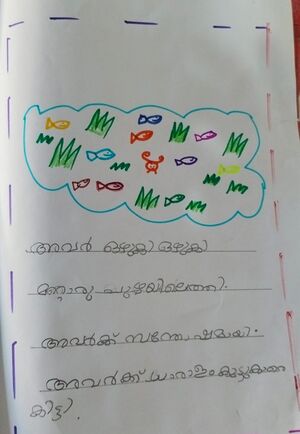 അവർ ഒഴുകി ഒഴുകി
മറ്റൊരു പുഴയിലെത്തി.
അവർക്ക് സന്തോഷമായി.
അവർക്ക് ധാരാളം കൂട്ടുകാരെ
കിട്ടി.